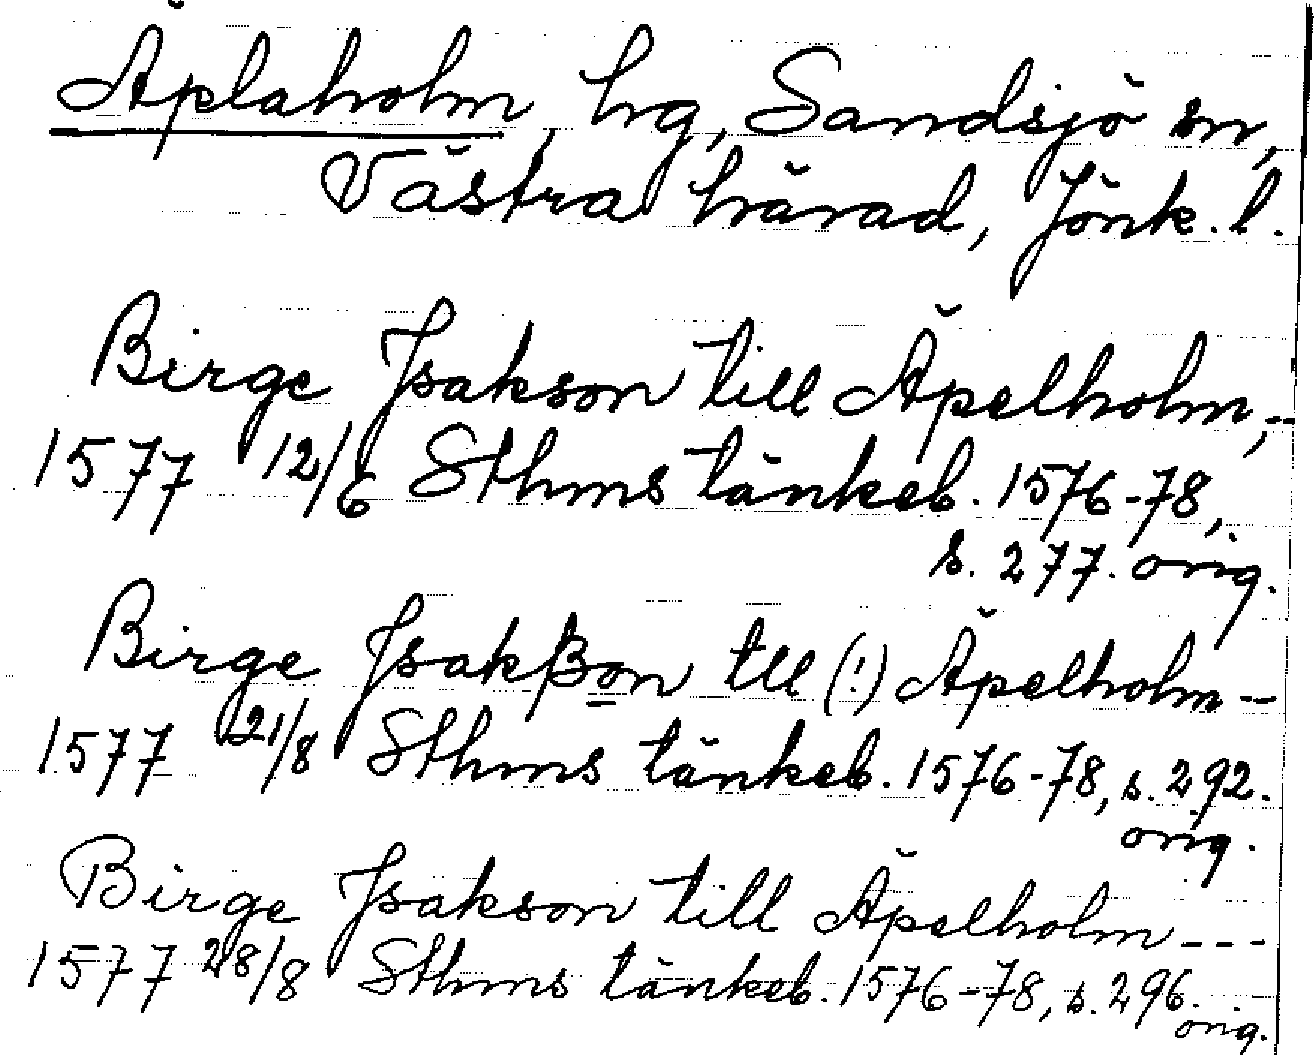 Äplaholm, hg, Sandsjö sn,
Västra härad, Jönk. l.
Birge Jsakson till Äpelholm,--
1577 12/6 Sthms tänkeb. 1576-78,
s. 277. orig.
Birge Jsakßon tll (!) Äpelholm --
1577 21/8 Sthms tänkeb. 1576-78, s. 292.
orig.
Birge Jsakson till Äpelholm ---
1577 28/8 Sthms tänkeb. 1576-78, s. 296.
orig.